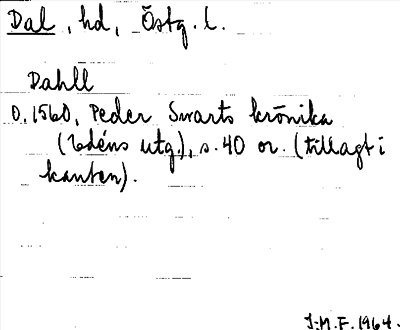 Dal, hd, Östg. l.
Dahll
O. 1560, Peder Swarts krönika
(Edéns utg.), s. 40 or. (tillagt i
kanten).
J.M.F. 1964.